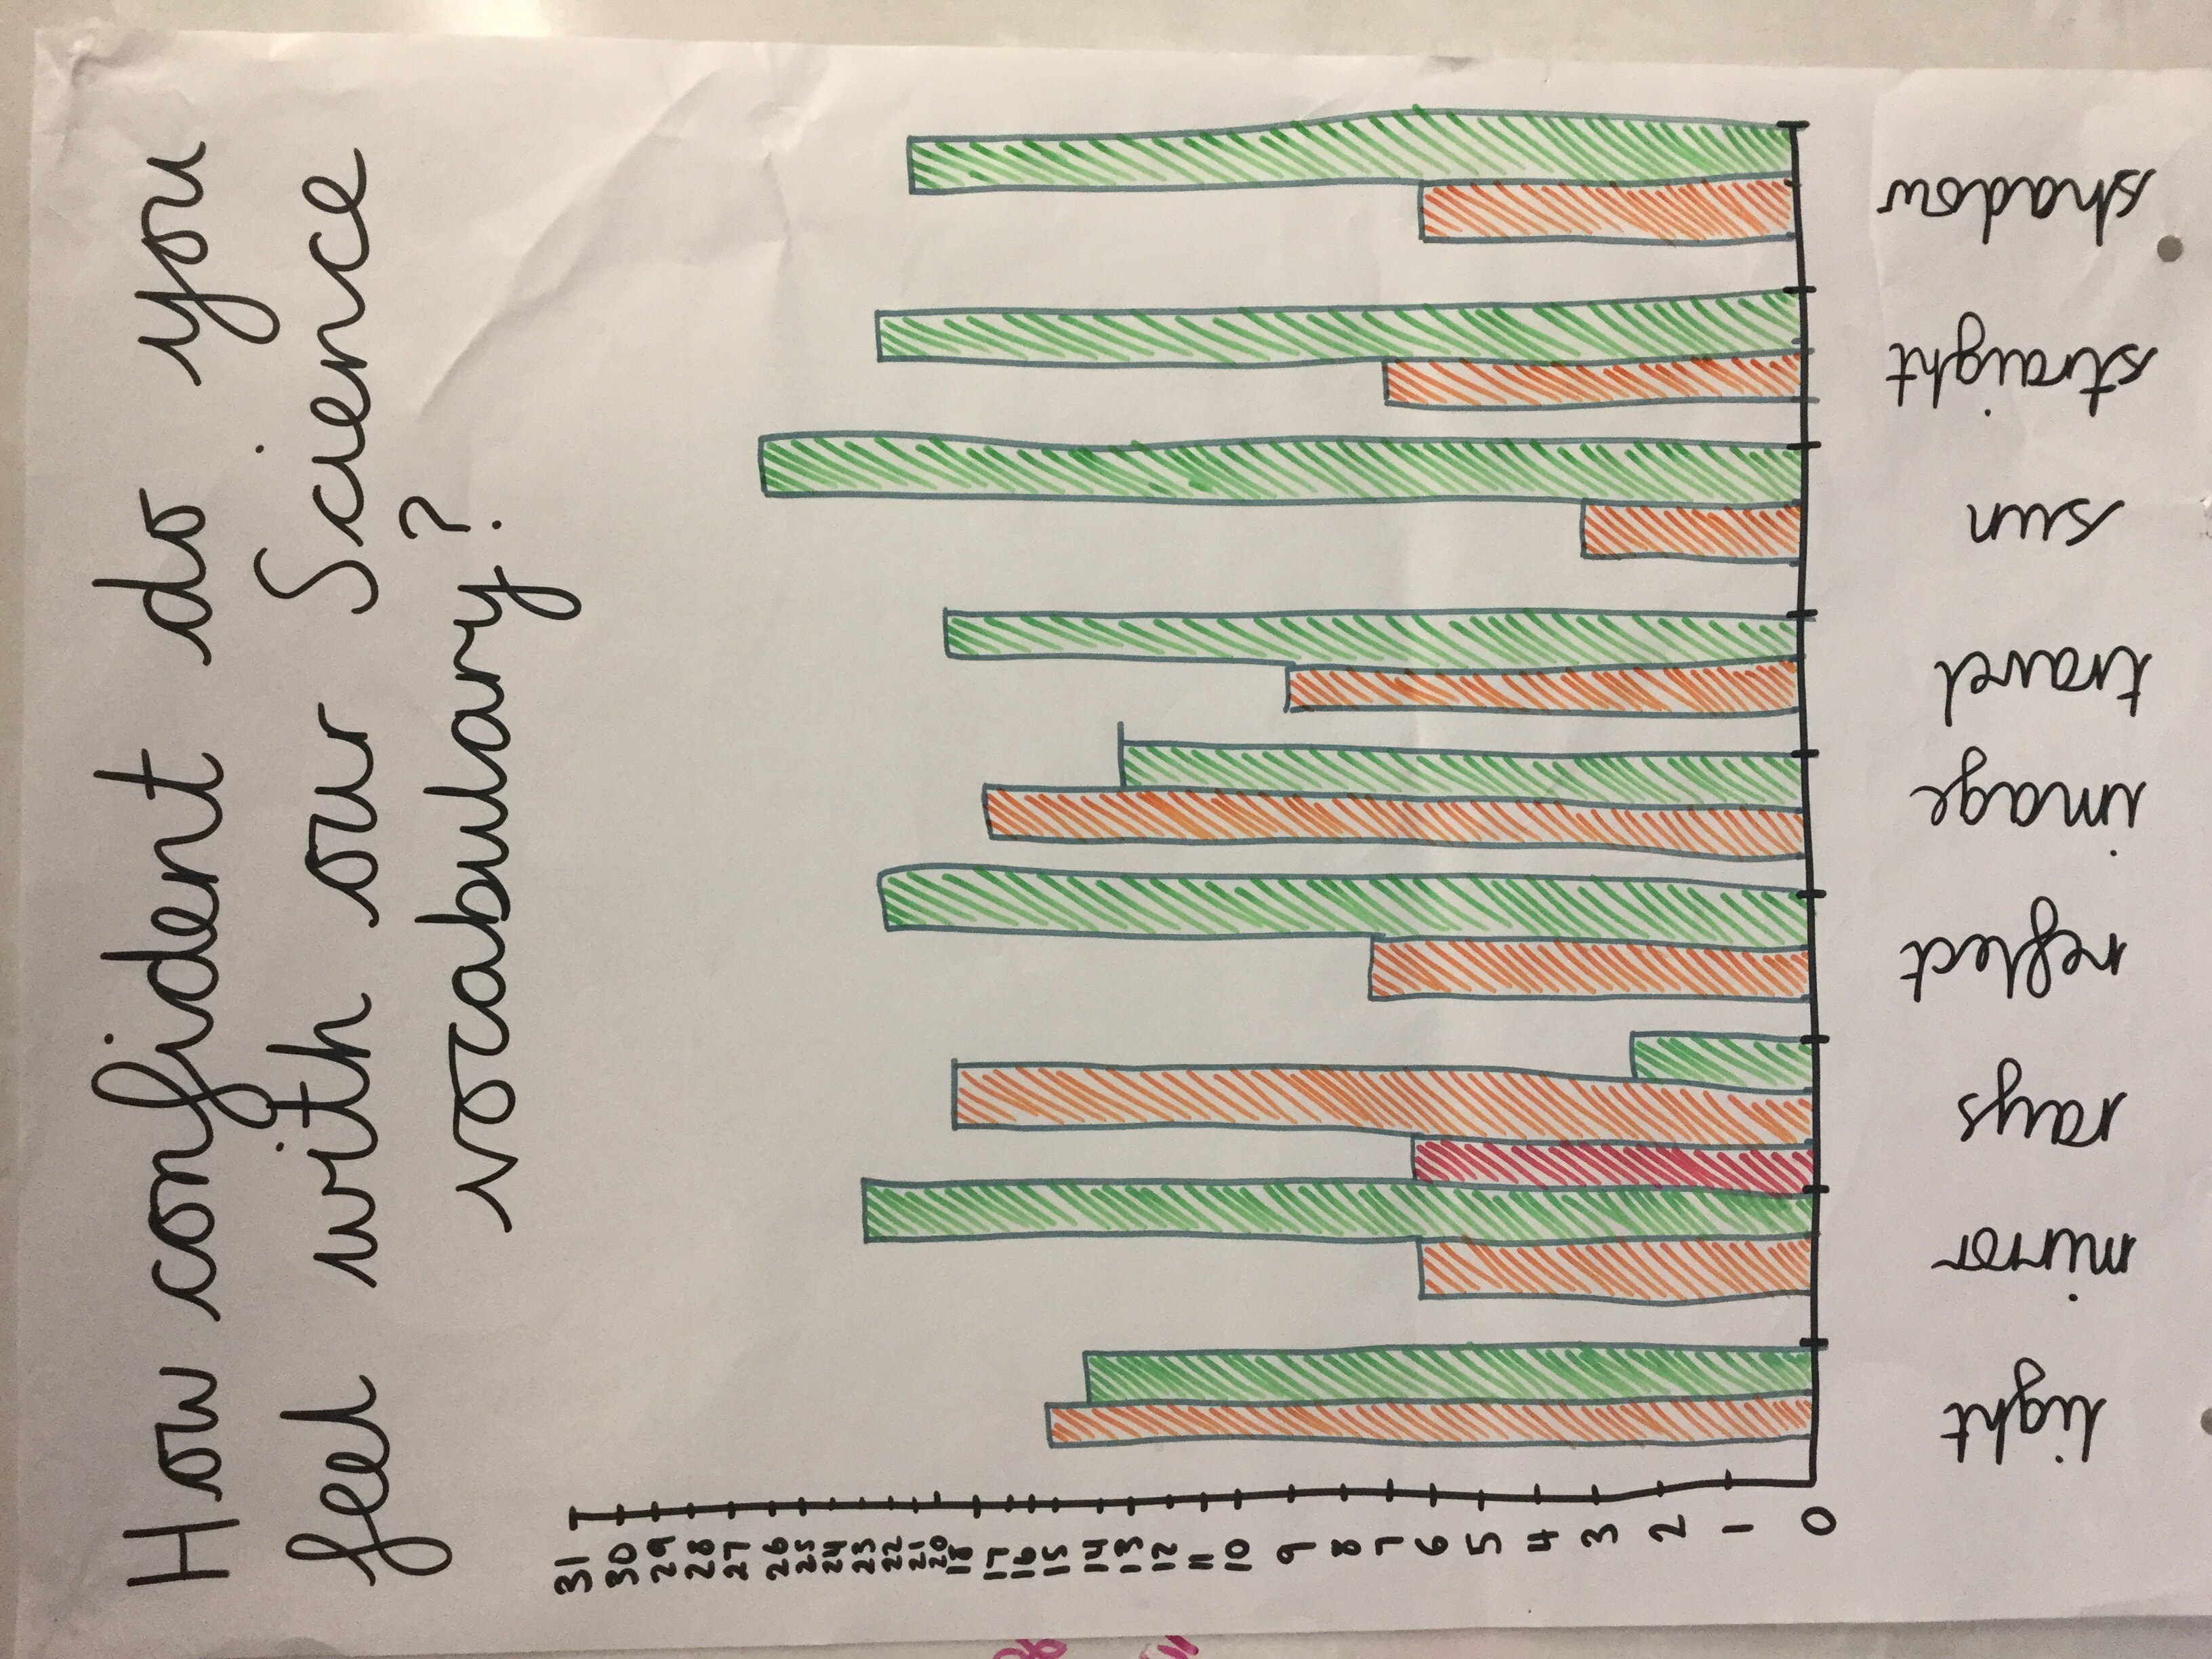 How confident do you
feel with our Science
vocabulary?
31
30
29
28
27
26
25
24
23
22
21
20
18
17
16
15
14
13
12
11
10
9
8
7
6
5
4
3
2
1
0
light
mirror
rays
reflect
image
travel
sun
straight
shadow